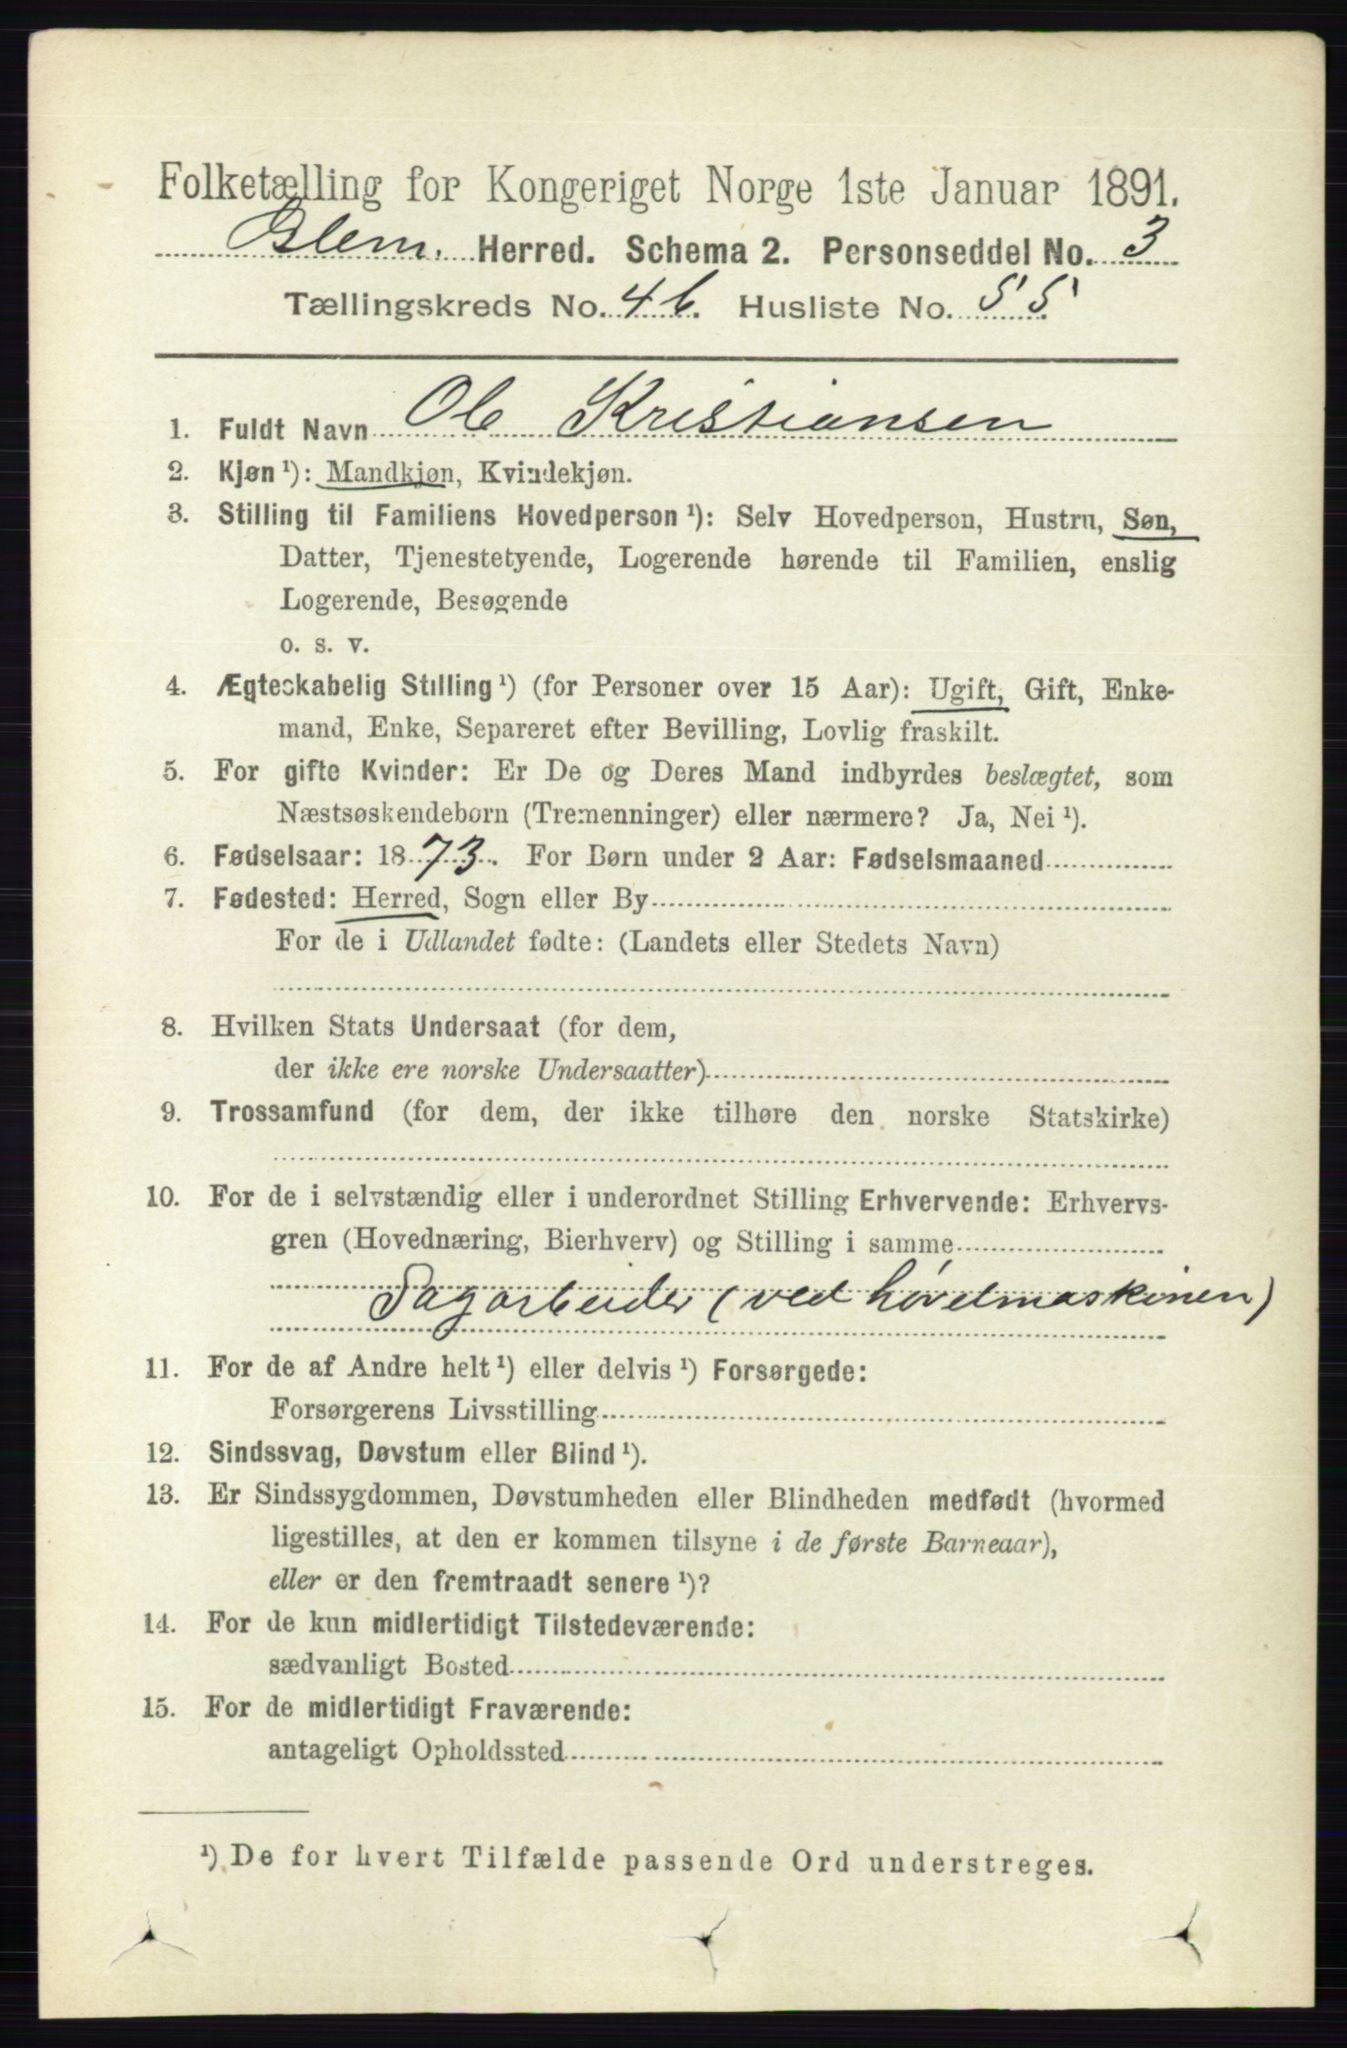 Folketælling for Kongeriget Norge 1ste Januar 1891.
Glem. Herred. Schema 2. Personseddel No. 3
Tællingskreds No. 46. Husliste No. 55.
1. Fuldt Navn Ole Kristiansen
2. Kjøn ¹): Mandkjøn, Kvindekjøn.
3. Stilling til Familiens Hovedperson ¹): Selv Hovedperson, Hustru, Søn,
Datter, Tjenestetyende, Logerende hørende til Familien, enslig
Logerende, Besøgende
o. s. v.
4. Ægteskabelig Stilling ¹) (for Personer over 15 Aar): Ugift, Gift, Enke-
mand, Enke, Separeret efter Bevilling, Lovlig fraskilt.
5. For gifte Kvinder: Er De og Deres Mand indbyrdes beslægtet, som
Næstsøskendebørn (Tremenninger) eller nærmere? Ja, Nei ¹).
6. Fødselsaar: 1873. For Børn under 2 Aar: Fødselsmaaned
7. Fødested: Herred, Sogn eller By
For de i Udlandet fødte: (Landets eller Stedets Navn)
8. Hvilken Stats Undersaat (for dem,
der ikke ere norske Undersaatter)
9. Trossamfund (for dem, der ikke tilhøre den norske Statskirke)
10. For de i selvstændig eller i underordnet Stilling Erhvervende: Erhvervs-
gren (Hovednæring, Bierhverv) og Stilling i samme
Sagarbeider (ved høvelmaskinen)
11. For de af Andre helt ¹) eller delvis ¹) Forsørgede:
Forsørgerens Livsstilling
12. Sindssvag, Døvstum eller Blind ¹).
13. Er Sindssygdommen, Døvstumheden eller Blindheden medfødt (hvormed
ligestilles, at den er kommen tilsyne i de første Barneaar),
eller er den fremtraadt senere ¹)?
14. For de kun midlertidigt Tilstedeværende:
sædvanligt Bosted
15. For de midlertidigt Fraværende:
antageligt Opholdssted
¹) De for hvert Tilfælde passende Ord understreges.